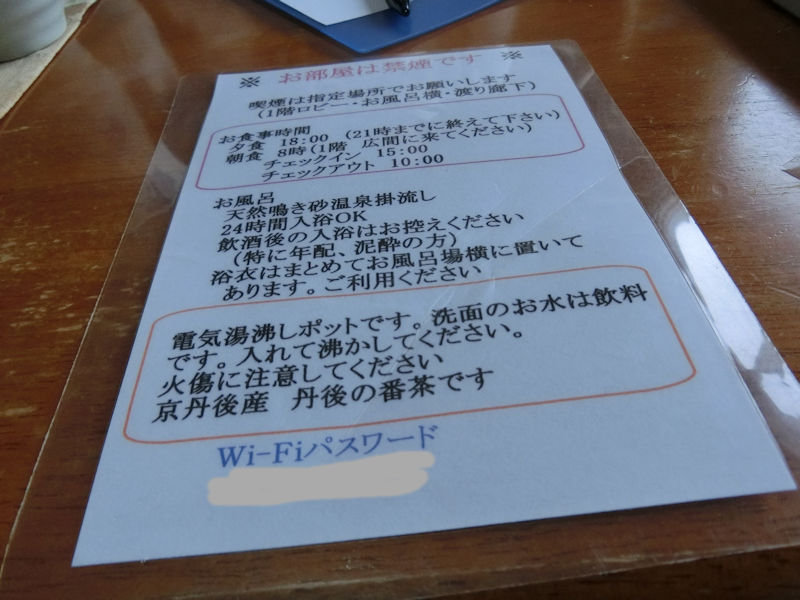 ※ お部屋は禁煙です ※
喫煙は指定場所でお願いします
（1階ロビー・お風呂横・渡り廊下）
お食事時間
夕食 18:00 （21時までに終えて下さい）
朝食 8時（1階 広間に来てください）
チェックイン 15:00
チェックアウト 10:00
お風呂
天然鳴き砂温泉掛流し
24時間入浴OK
飲酒後の入浴はお控えください
（特に年配、泥酔の方）
浴衣はまとめてお風呂場横に置いて
あります。ご利用ください
電気湯沸しポットです。洗面のお水は飲料
です。入れて沸かしてください。
火傷に注意してください
京丹後産 丹後の番茶です
Wi-Fiパスワード